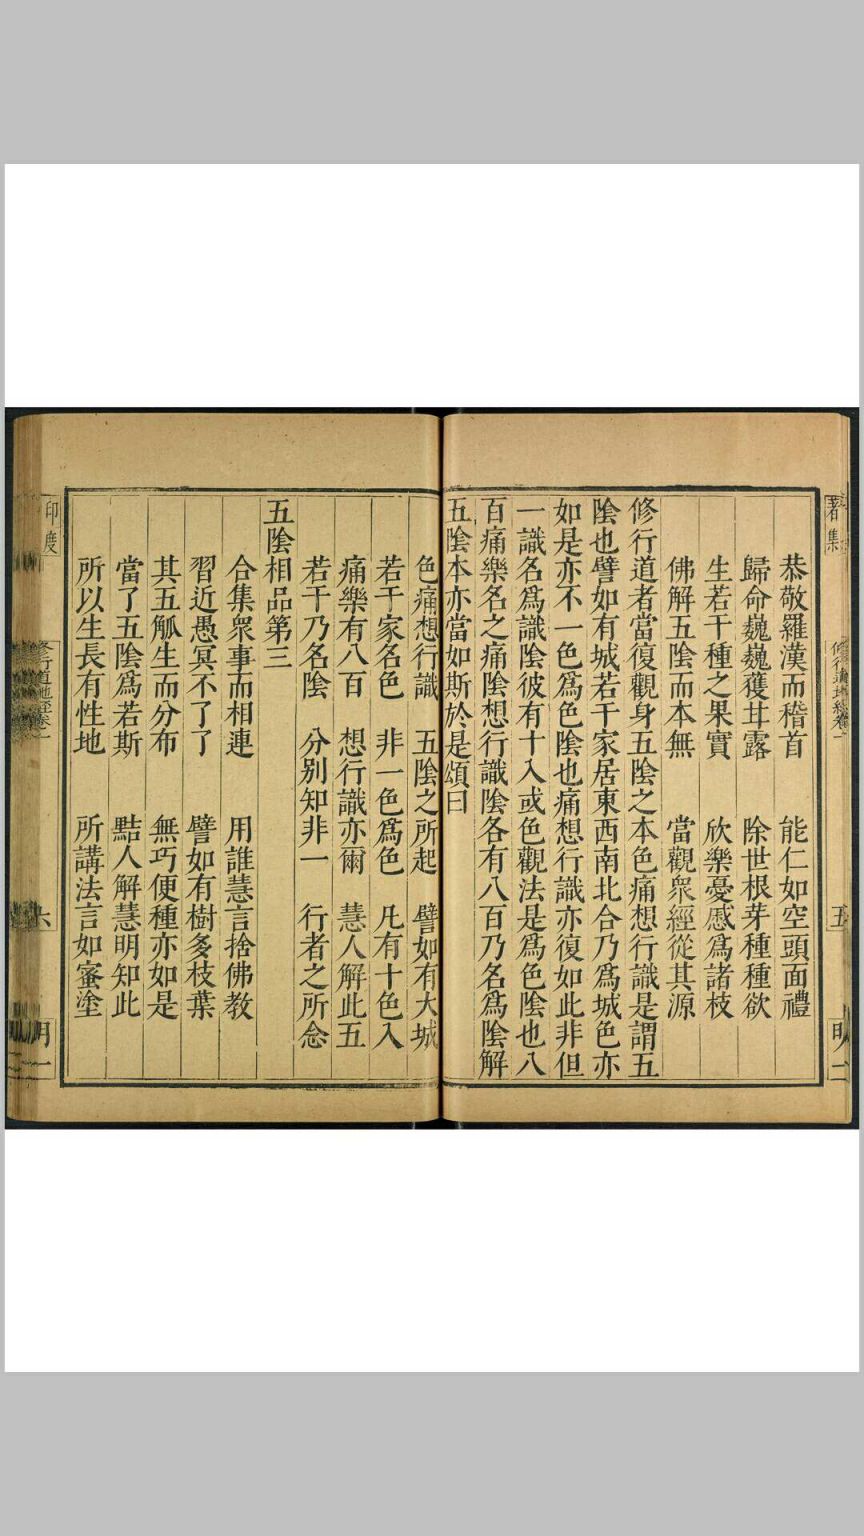 恭敬羅漢而稽首　能仁如空頭面禮
歸命巍巍獲甘露　除世根芽種種欲
生若干種之果實　欣樂憂慼爲諸枝
佛解五陰而本無　當觀衆經從其源
修行道者當復觀身五陰之本色痛想行識是謂五
陰也譬如有城若干家居東西南北合乃爲城色亦
如是亦不一色爲色陰也痛想行識亦復如此非但
一識名爲識陰彼有十入或色觀法是爲色陰也八
百痛樂名之痛陰想行識陰各有八百乃名爲陰解
五陰本亦當如斯於是頌曰
色痛想行識　五陰之所起　譬如有大城
若干家名色　非一色爲色　凡有十色入
痛樂有八百　想行識亦爾　慧人解此五
若干乃名陰　分别知非一　行者之所念
五陰相品第三
合集衆事而相連　用誰慧言捨佛教
習近愚冥不了了　譬如有樹多枝葉
其五觚生而分布　無巧便種亦如是
當了五陰爲若斯　黠人解慧明知此
所以生長有性地　所講法言如蜜塗
著集
修行道地經卷一
五
明二
印度
修行道地經卷一
六
明一